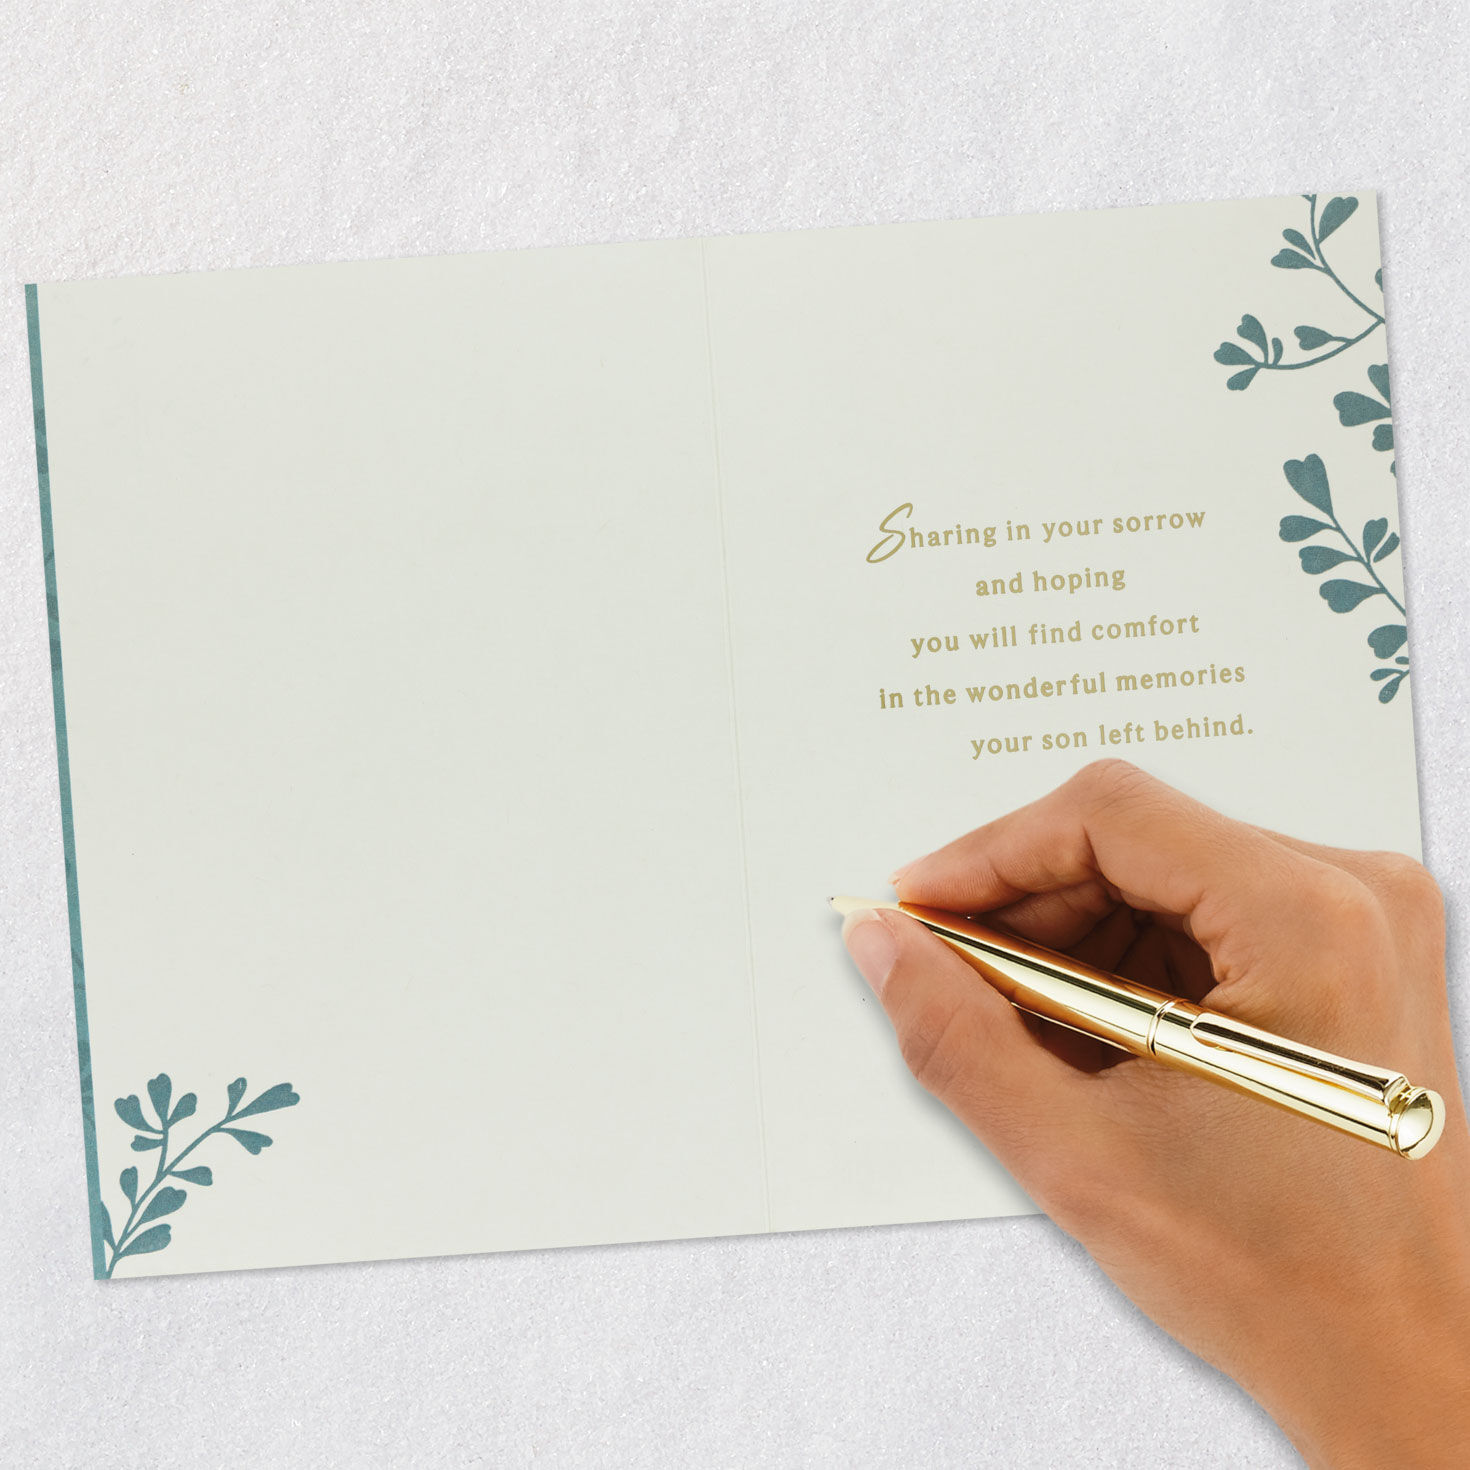 Sharing in your sorrow
and hoping
you will find comfort
in the wonderful memories
your son left behind.